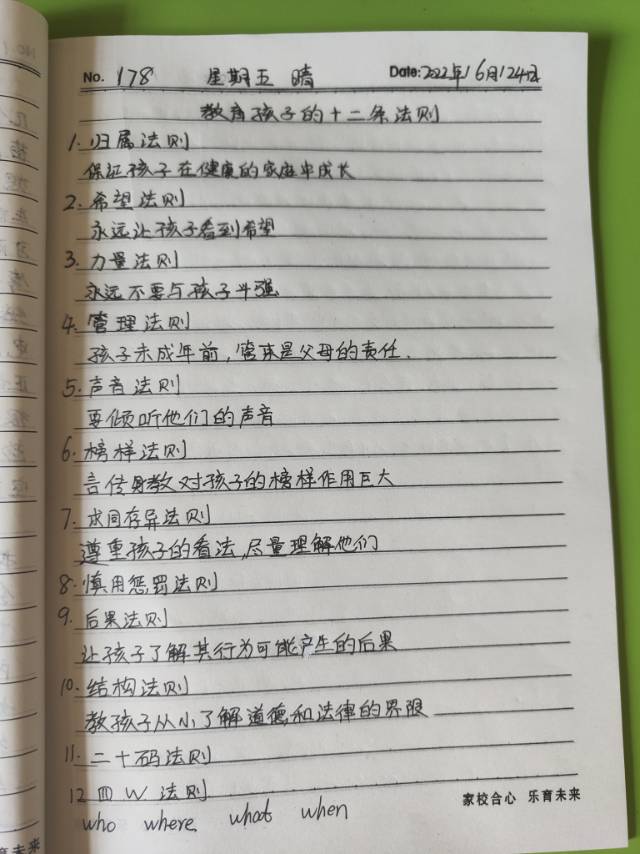 No. 178 星期五 晴 Date: 2022年6月24日
教育孩子的十二条法则
1. 归属法则
保证孩子在健康的家庭中成长
2. 希望法则
永远让孩子看到希望
3. 力量法则
永远不要与孩子斗强
4. 管理法则
孩子未成年前,管束是父母的责任.
5. 声音法则
要倾听他们的声音
6. 榜样法则
言传身教对孩子的榜样作用巨大
7. 求同存异法则
遵重孩子的看法,尽量理解他们
8. 慎用惩罚法则
9. 后果法则
让孩子了解其行为可能产生的后果
10. 结构法则
教孩子从小了解道德和法律的界限
11. 二十码法则
12 四W法则
who where what when
家校合心 乐育未来